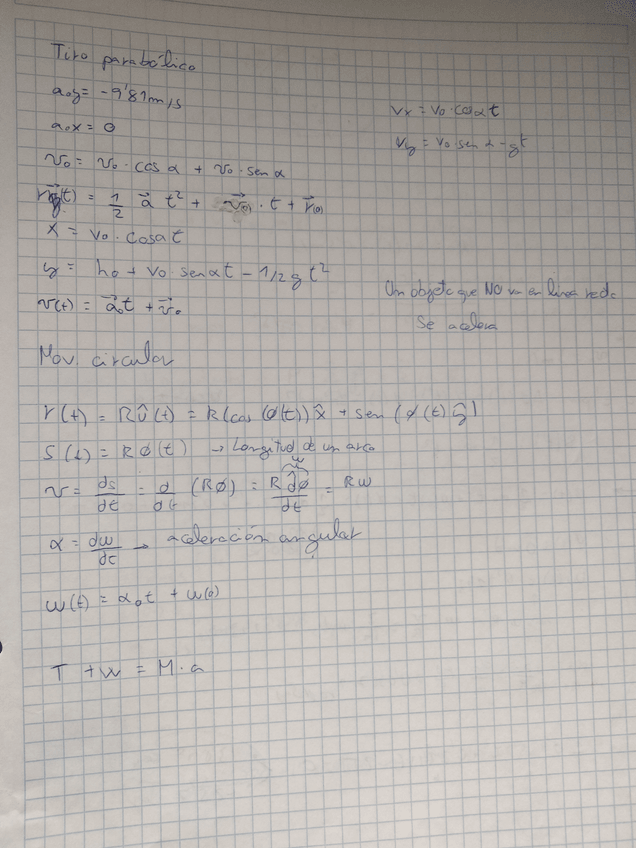 Tiro parabólico
a₀y = -9'81m/s
a₀x = 0
v₀ = v₀ · cos α + v₀ · sen α
r⃗(t) = 1/2 a⃗ t² + v⃗(0) · t + r⃗(0)
x = v₀ · cosαt
y = h₀ + v₀ · senαt - 1/2 g t²
v(t) = a⃗₀t + v⃗₀
vx = v₀ · cosαt
vy = v₀ · sen α - gt
Un objeto que NO va en línea recta
Se acelera
Mov. circular
r(t) = Rû(t) = R(cos (ø(t)) x̂ + sen (ø(t) ŷ)
S(t) = Rø(t) → Longitud de un arco
v = ds/dt = d/dt (Rø) = R dø/dt = Rω
ω
α = dω/dt → aceleración angular
ω(t) = α₀t + ω(0)
T + W = M · a